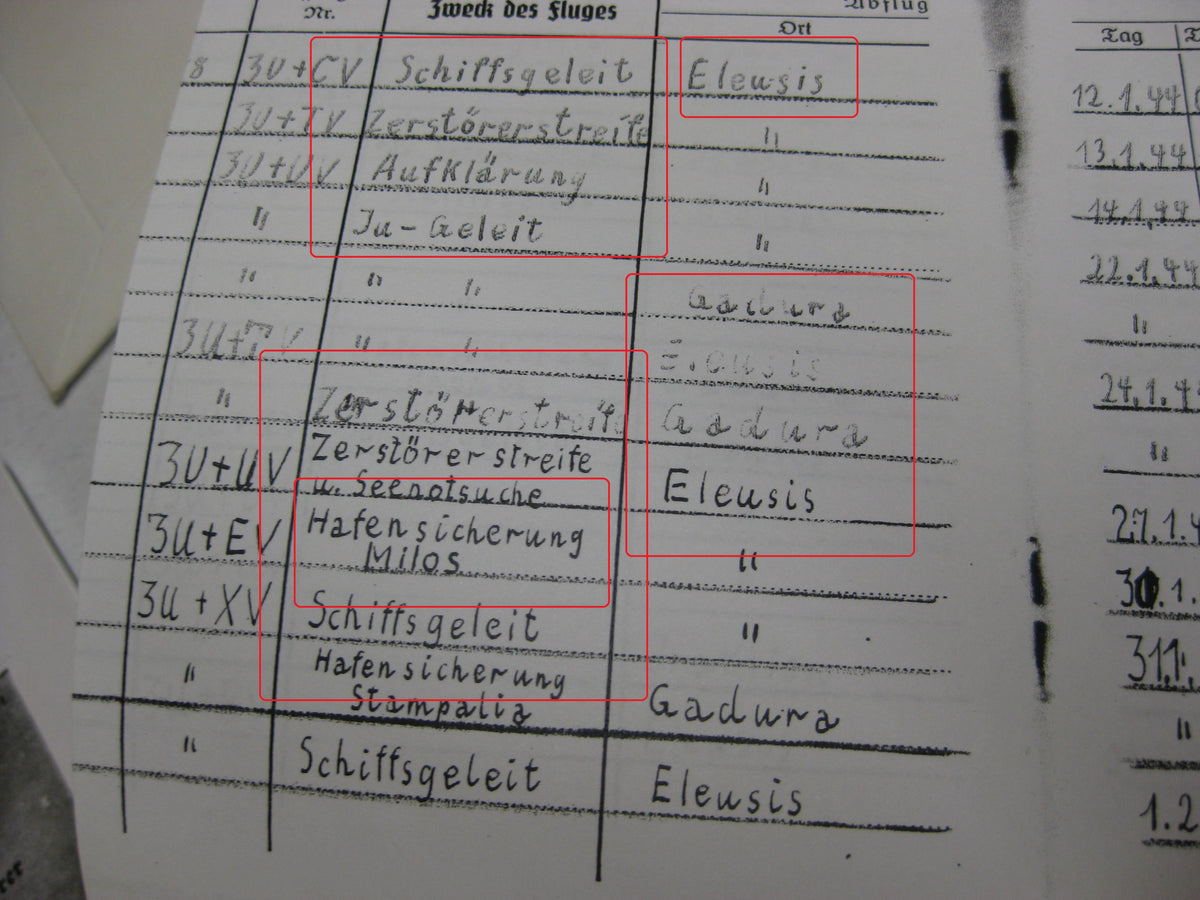 Nr. Zweck des Fluges Abflug
Ort Tag
8 3U+CV Schiffsgeleit Eleusis 12.1.44
3U+TV Zerstörerstreife " 13.1.44
3U+UV Aufklärung " 14.1.44
" Ju-Geleit " 22.1.44
" " " Gadura "
" " Eleusis 24.1.4
" Zerstörerstreife Gadura "
3U+UV Zerstörerstreife
u. Seenotsuche Eleusis 27.1.4
3U+EV Hafensicherung
Milos " 1.
3U+XV Schiffsgeleit " 31.1.
" Hafensicherung
Stampalia Gadura "
" Schiffsgeleit Eleusis 1.2